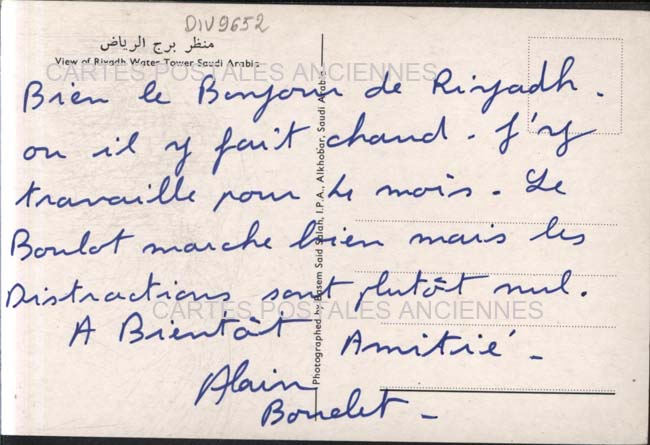 DIV9652
منظر برج الرياض
View of Riyadh Water Tower Saudi Arabia
CARTES POSTALES ANCIENNES
Bien le Bonjour de Riyadh.
ou il y fait chaud. J'y
travaille pour le mois. Le
Boulot marche bien mais les
Distractions sont plutôt nul.
CARTES POSTALES ANCIENNES
A Bientôt Amitié -
Alain
Photographed by Basem Said Salah, I.P.A., Alkhobar, Saudi Arabia